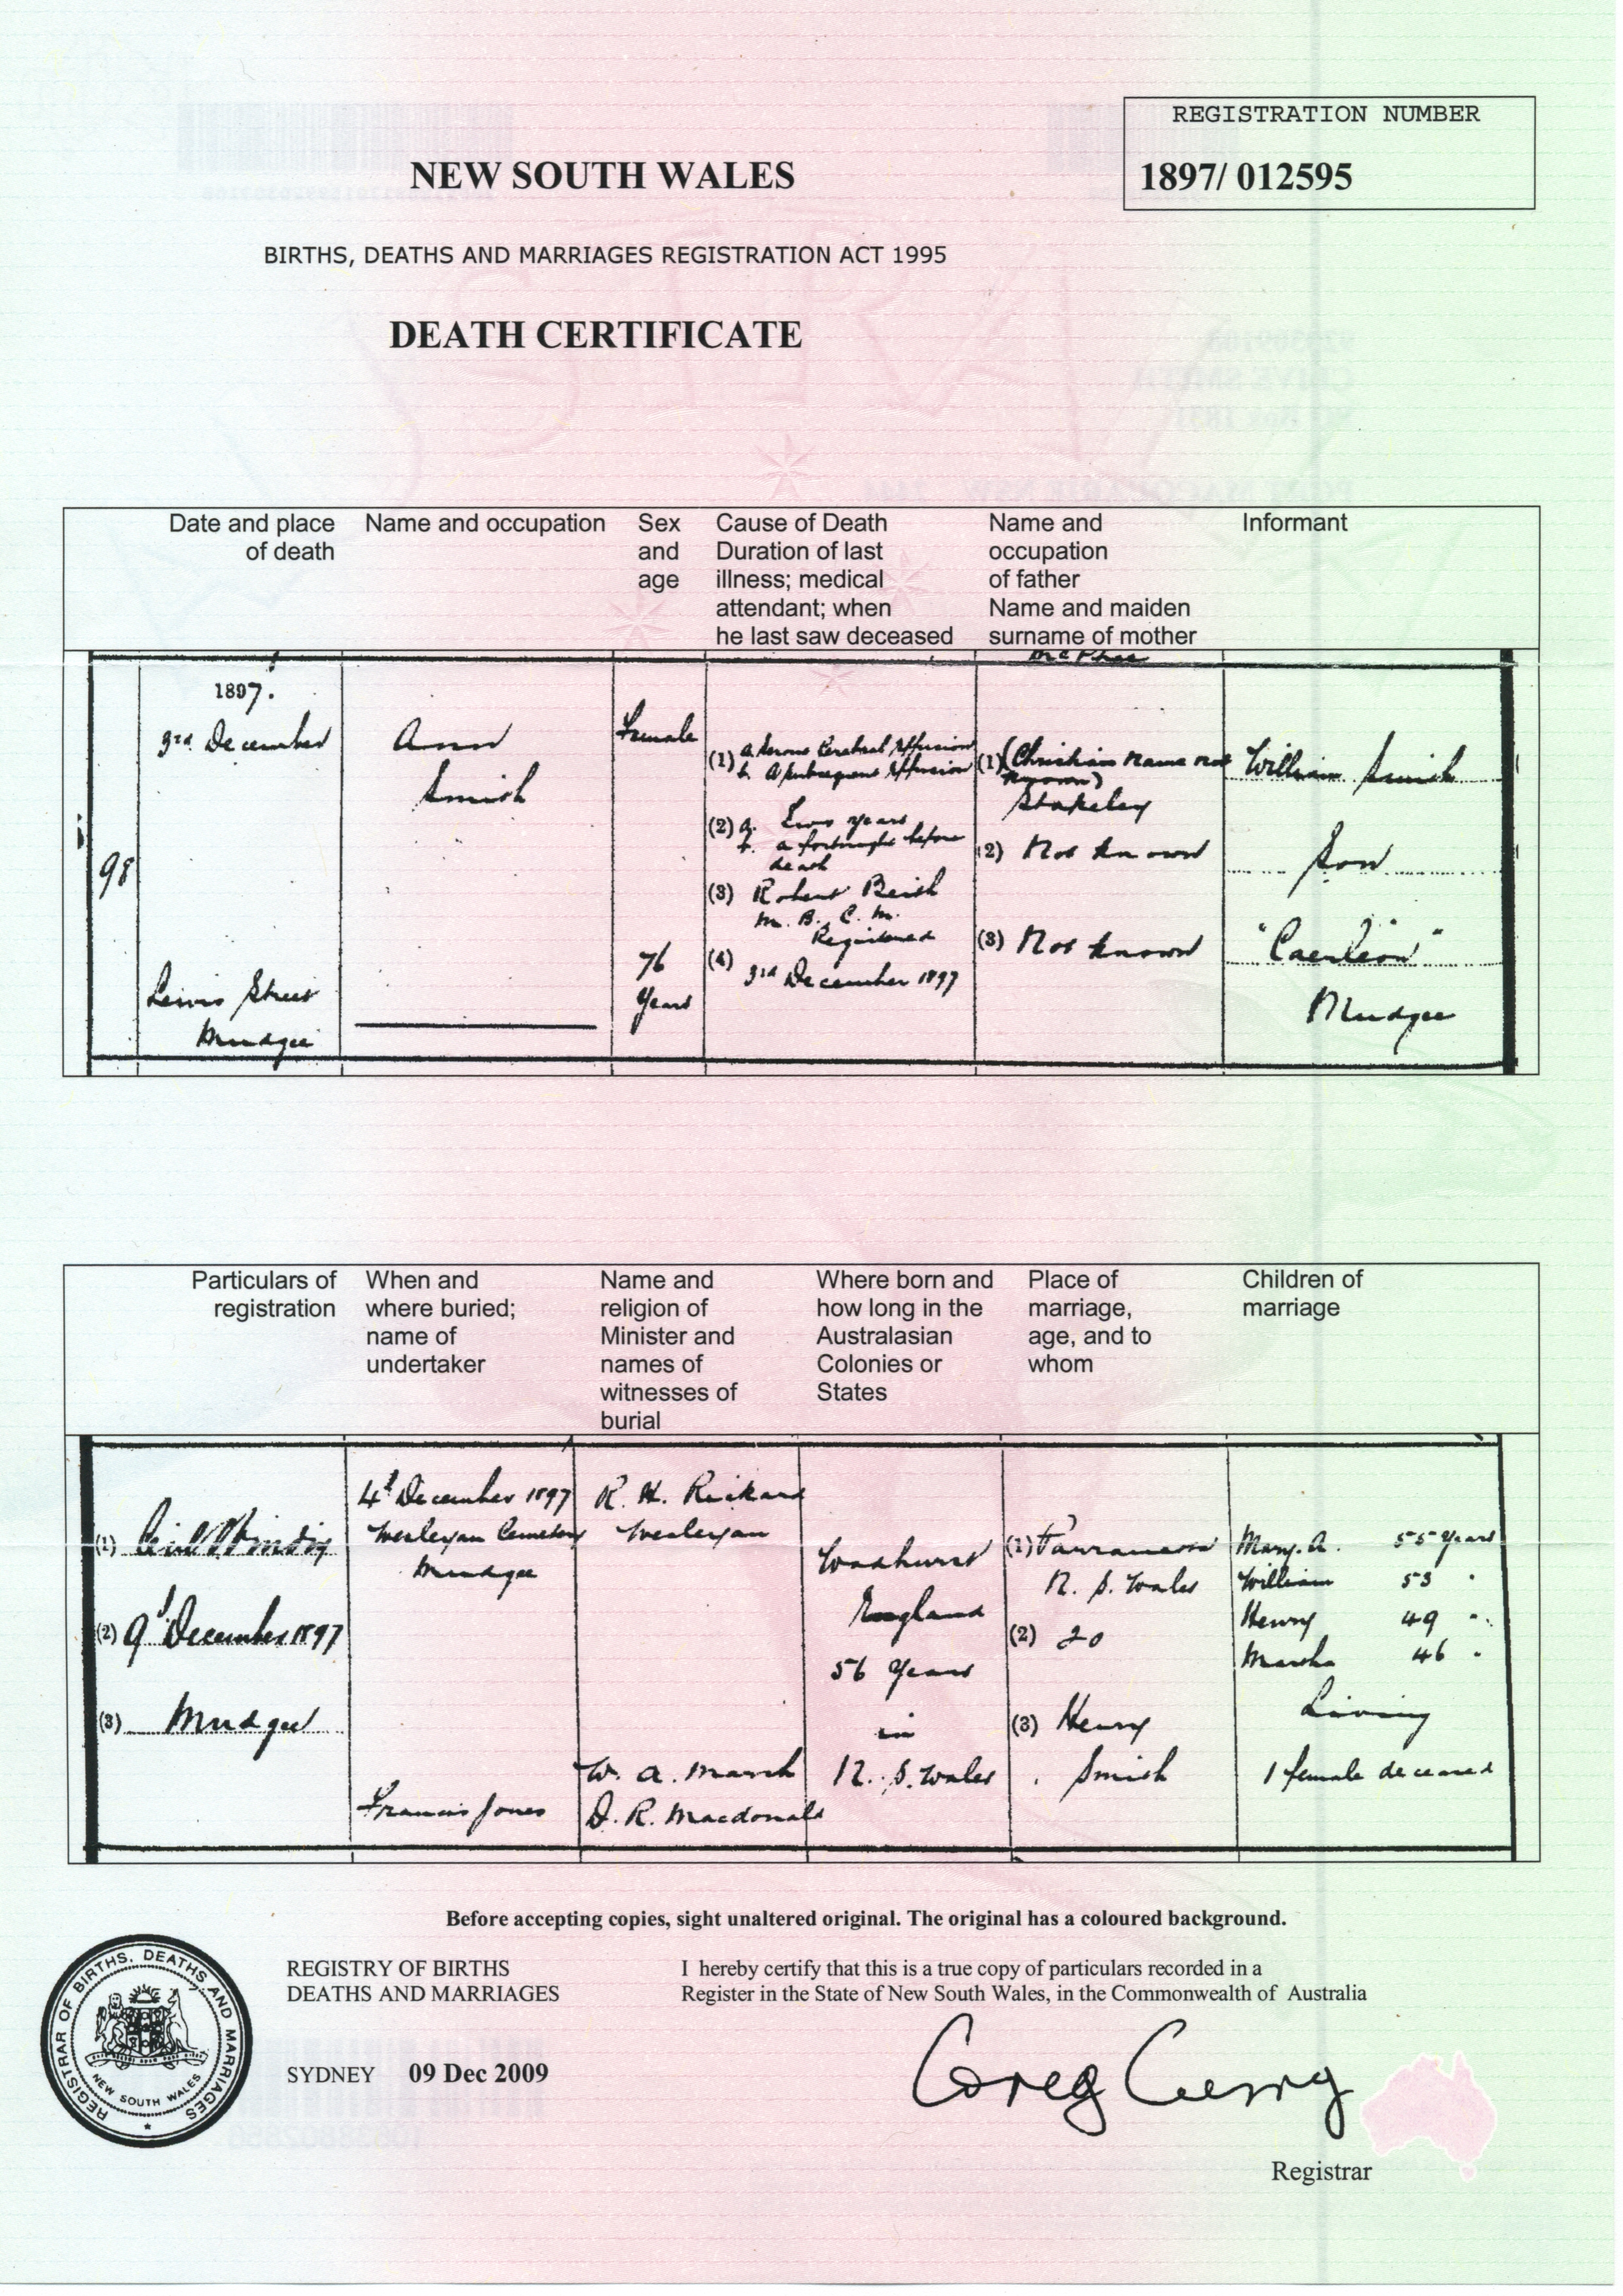 REGISTRATION NUMBER
1897/ 012595
NEW SOUTH WALES
BIRTHS, DEATHS AND MARRIAGES REGISTRATION ACT 1995
DEATH CERTIFICATE
Date and place
of death
Name and occupation
Sex
and
age
Cause of Death
Duration of last
illness; medical
attendant; when
he last saw deceased
Name and
occupation
of father
Name and maiden
surname of mother
Informant
98
1897.
3rd December
Lewis Street
Mudgee
Ann
Smith
Female
76
Years
(1) a. Serous Cerebral Effusion
b. A subsequent Effusion
(2) a. Two years
b. a fortnight before
death
(3) Robert Beith
M. B. C. M.
Registered
(4) 3rd December 1897
(1) (Christian name not
known)
Stakeley
(2) Not known
(3) Not known
William Smith
Son
"Caerleon"
Mudgee
Particulars of
registration
When and
where buried;
name of
undertaker
Name and
religion of
Minister and
names of
witnesses of
burial
Where born and
how long in the
Australasian
Colonies or
States
Place of
marriage,
age, and to
whom
Children of
marriage
(1)
(2) 9th December 1897
(3) Mudgee
4th December 1897
Wesleyan Cemetery
Mudgee
Francis Jones
R. H. Rickard
Wesleyan
W. A. Marsh
D. R. Macdonald
Woodhurst
England
56 Years
in
N. S. Wales
(1) Parramatta
N. S. Wales
(2) 20
(3) Henry
Smith
Mary. A. 55 Years
William 53 "
Henry 49 "
Martha 46 "
Living
1 female deceased
Before accepting copies, sight unaltered original. The original has a coloured background.
REGISTRAR OF BIRTHS, DEATHS AND MARRIAGES
NEW SOUTH WALES
REGISTRY OF BIRTHS
DEATHS AND MARRIAGES
SYDNEY 09 Dec 2009
I hereby certify that this is a true copy of particulars recorded in a
Register in the State of New South Wales, in the Commonwealth of Australia
Greg Curry
Registrar